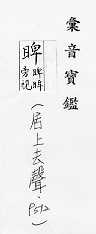 彙音寶鑑
睥
睥睨
旁視
(居上去聲·P52)